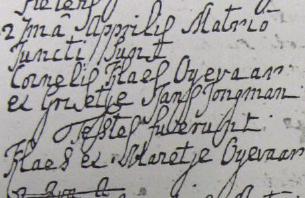 2 mâ Apprilis Matrio
Juncti Sunt
Cornelis Klaes Oyevaar
et Grietje Jans Jongman
Testes fuerunt
Klaes et Maretje Oyevaar